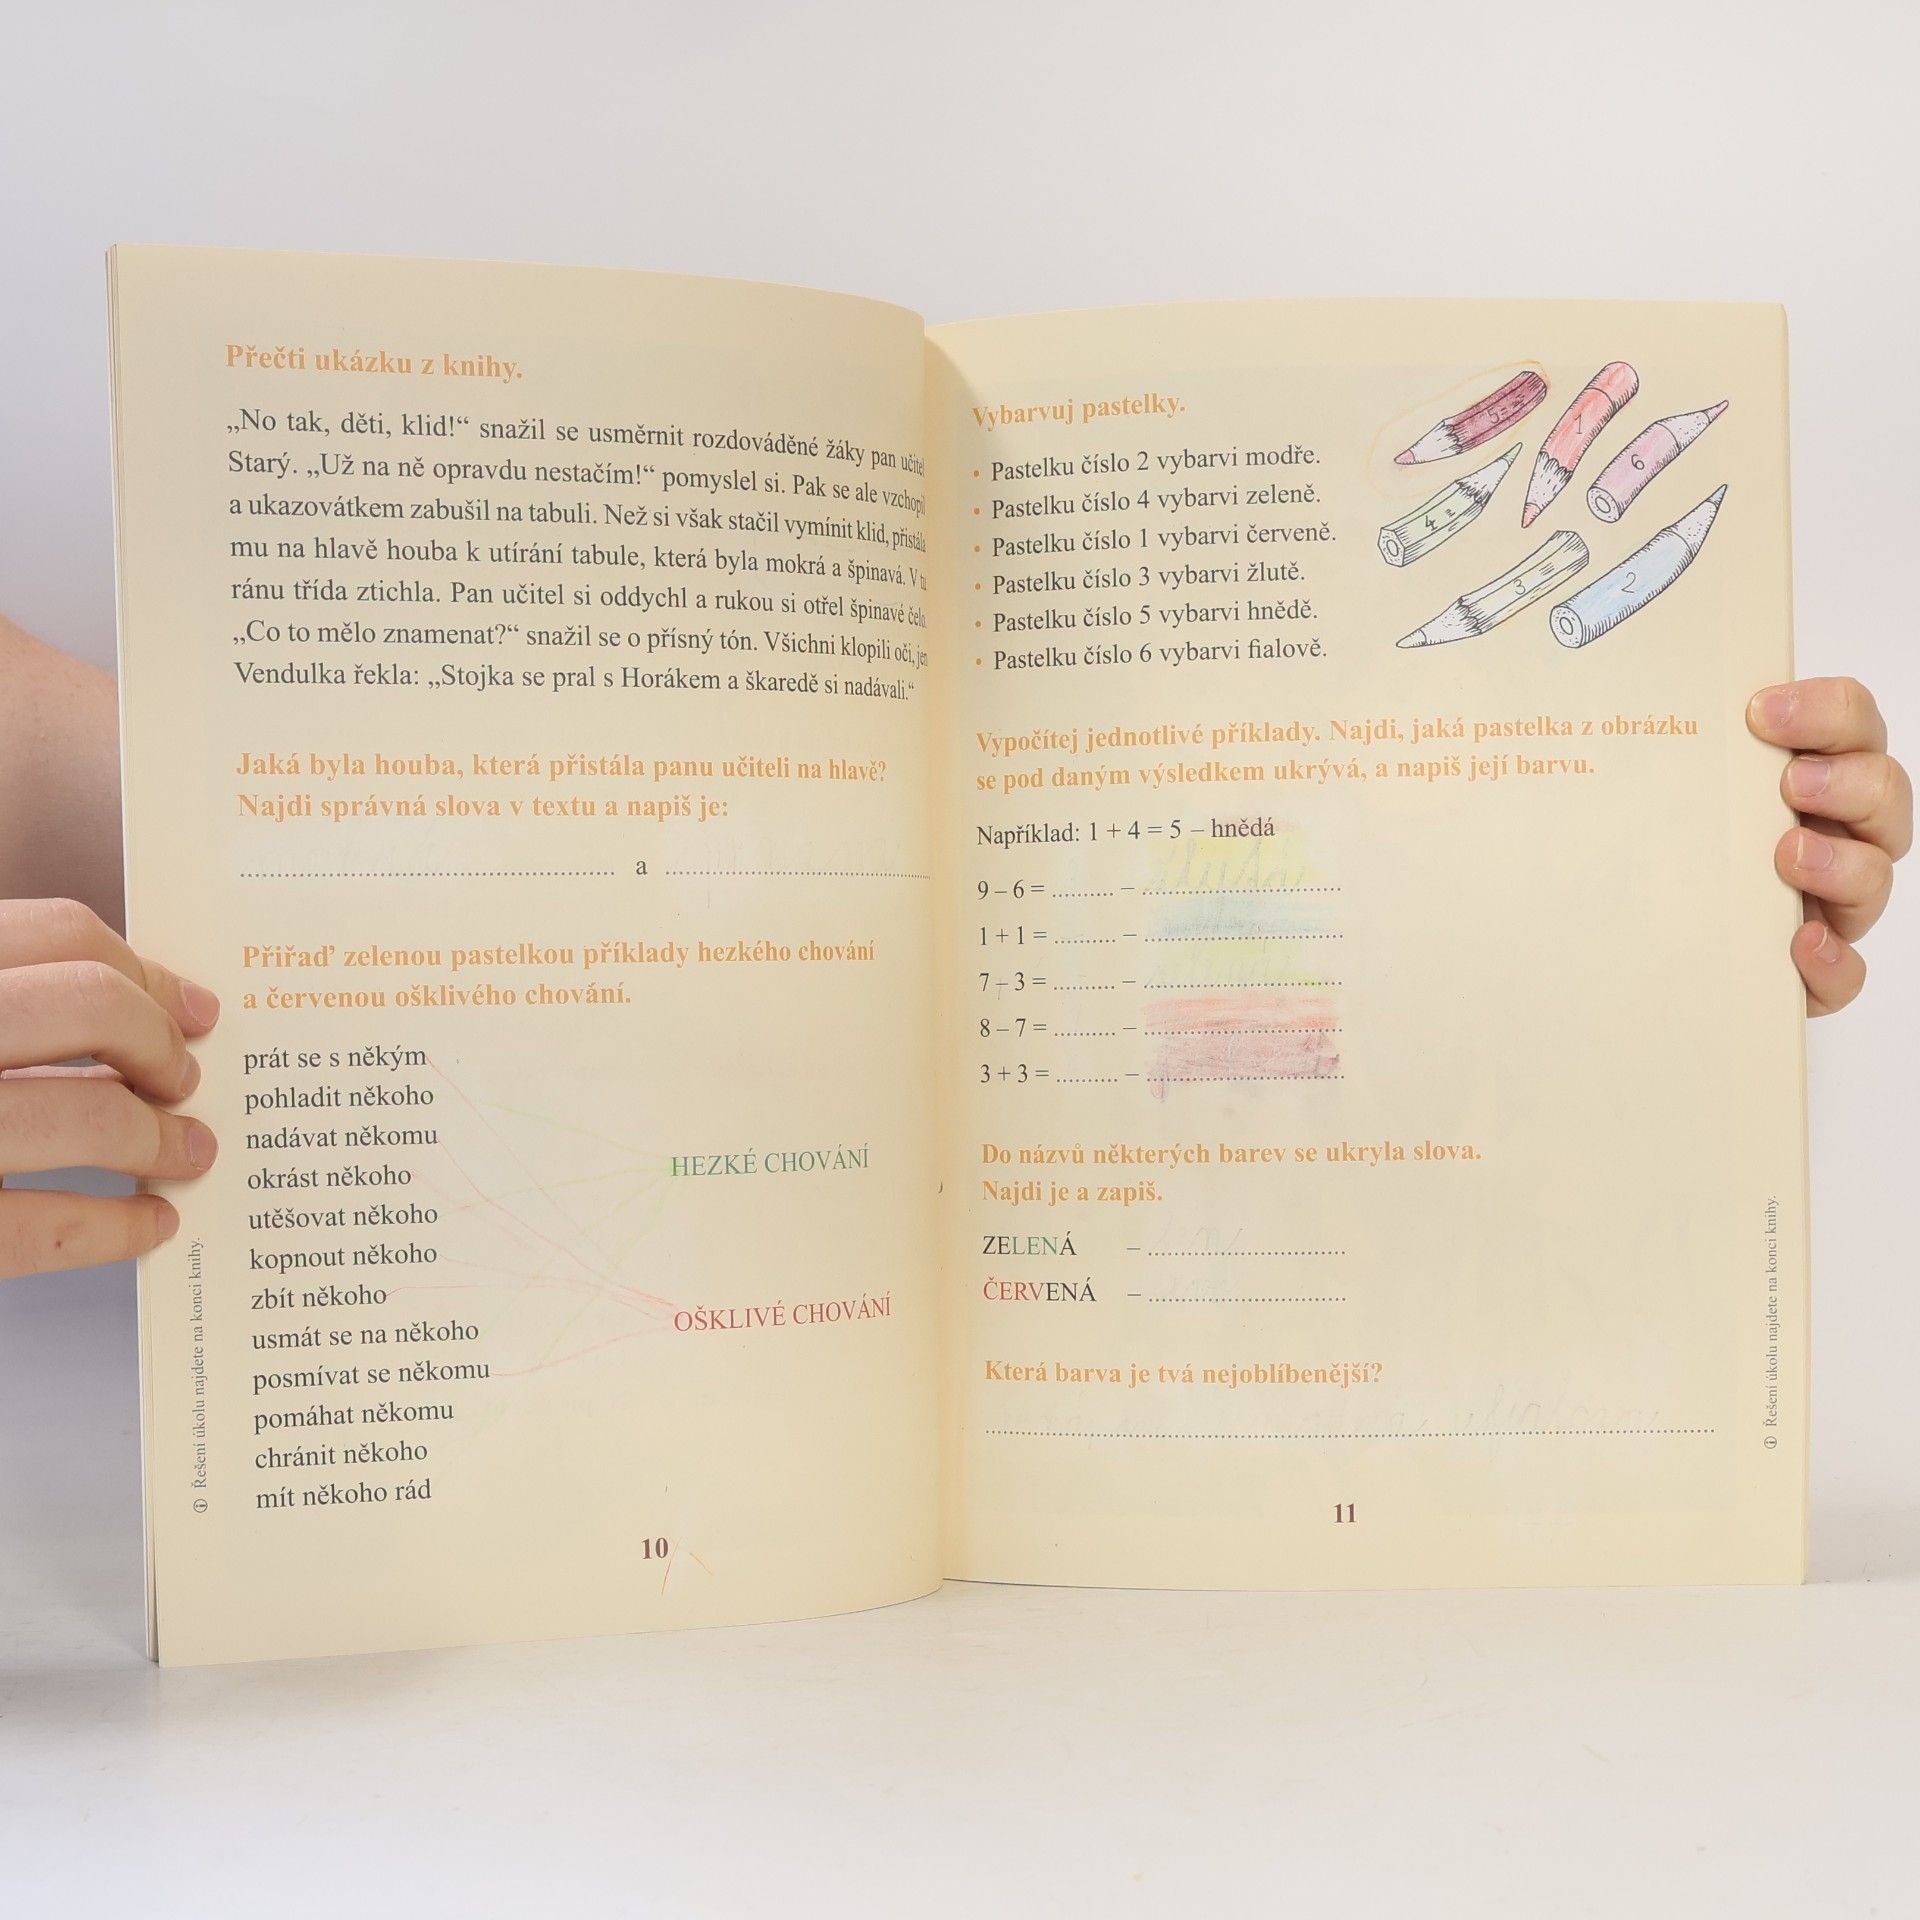 Přečti ukázku z knihy.
„No tak, děti, klid!“ snažil se usměrnit rozdováděné žáky pan učitel
Starý. „Už na ně opravdu nestačím!“ pomyslel si. Pak se ale vzchopil
a ukazovátkem zabušil na tabuli. Než si však stačil vymínit klid, přistála
mu na hlavě houba k utírání tabule, která byla mokrá a špinavá. V tu
ránu třída ztichla. Pan učitel si oddychl a rukou si otřel špinavé čelo.
„Co to mělo znamenat?“ snažil se o přísný tón. Všichni klopili oči, jen
Vendulka řekla: „Stojka se pral s Horákem a škaredě si nadávali.“
Jaká byla houba, která přistála panu učiteli na hlavě?
Najdi správná slova v textu a napiš je:
.................................................... a ......................................
Přiřaď zelenou pastelkou příklady hezkého chování
a červenou ošklivého chování.
prát se s někým
pohladit někoho
nadávat někomu
okrást někoho
utěšovat někoho
kopnout někoho
zbít někoho
usmát se na někoho
posmívat se někomu
pomáhat někomu
chránit někoho
mít někoho rád
HEZKÉ CHOVÁNÍ
OŠKLIVÉ CHOVÁNÍ
Řešení úkolu najdete na konci knihy.
10
Vybarvuj pastelky.
• Pastelku číslo 2 vybarvi modře.
• Pastelku číslo 4 vybarvi zeleně.
• Pastelku číslo 1 vybarvi červeně.
• Pastelku číslo 3 vybarvi žlutě.
• Pastelku číslo 5 vybarvi hnědě.
• Pastelku číslo 6 vybarvi fialově.
5
1
6
4
3
2
Vypočítej jednotlivé příklady. Najdi, jaká pastelka z obrázku
se pod daným výsledkem ukrývá, a napiš její barvu.
Například: 1 + 4 = 5 – hnědá
9 – 6 = .......... – ................................
1 + 1 = .......... – ................................
7 – 3 = .......... – ................................
8 – 7 = .......... – ................................
3 + 3 = .......... – ................................
Do názvů některých barev se ukryla slova.
Najdi je a zapiš.
ZELENÁ – ................................
ČERVENÁ – ................................
Která barva je tvá nejoblíbenější?
Řešení úkolu najdete na konci knihy.
11